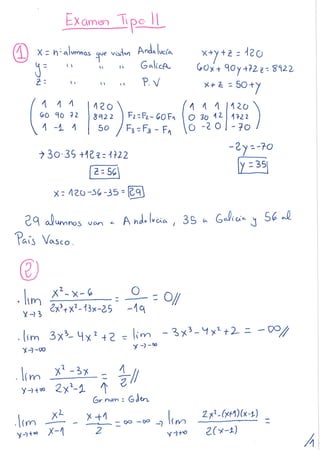 Examen Tipo II
① X = nº alumnos que visitan Andalucía x+y+z = 120
y = '' '' '' Galicia 60x + 90y +72z = 8922
z: '' '' '' P.V x+z = 50+y
( 1 1 1 | 120 ) ( 1 1 1 | 120 )
( 60 90 72 | 8922 ) F2=F2-60F1 ( 0 30 12 | 1722 )
( 1 -1 1 | 50 ) F3=F3-F1 ( 0 -2 0 | -70 )
-2y=-70
→ 30·35 +12z = 1722 y=35
z=56
x = 120-56-35 = 29
29 alumnos van a Andalucía, 35 a Galicia y 56 al
País Vasco.
②
· lim x→3 (x²-x-6)/(2x³+x²-13x-25) = 0/-19 = 0//
· lim x→-∞ 3x³-4x²+2 = lim x→-∞ -3x³-4x²+2 = -∞//
· lim x→+∞ (x²-3x)/(2x²-1) = 1/2//
Gr num = Gden
· lim x→+∞ x²/(x-1) - (x+1)/2 = ∞-∞ → lim x→+∞ (2x²-(x+1)(x-1))/(2(x-1)) =
/1